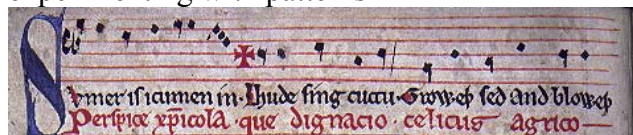 Svmer is icumen in. Lhude sing cuccu. Groweþ sed and bloweþ
Perspice xp̄icola. que dignacio. celicus agrico—